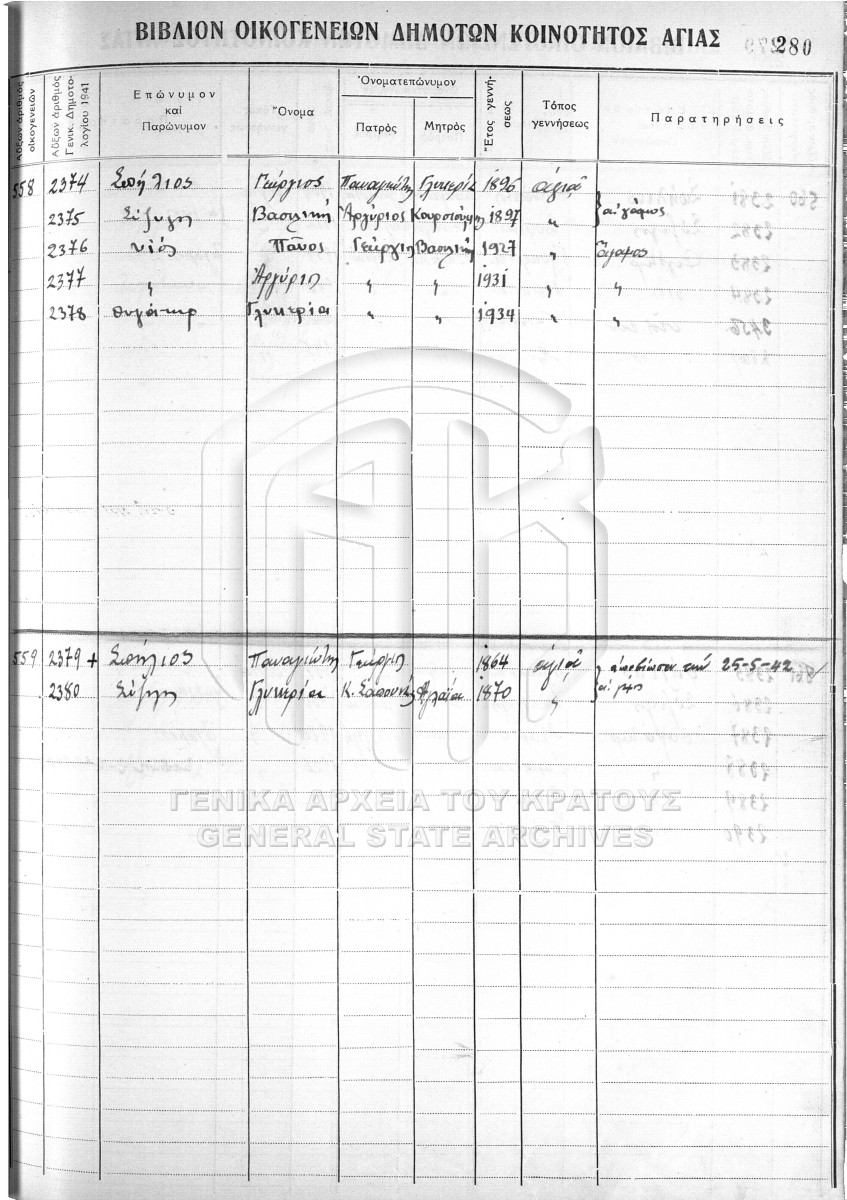 ΒΙΒΛΙΟΝ ΟΙΚΟΓΕΝΕΙΩΝ ΔΗΜΟΤΩΝ ΚΟΙΝΟΤΗΤΟΣ ΑΓΙΑΣ 280
Αὔξων ἀριθμὸς οἰκογενειῶν
Αὔξων ἀριθμὸς Γενικ. Δημοτολογίου 1941
Ἐπώνυμον καὶ Παρώνυμον
Ὄνομα
Ὀνοματεπώνυμον
Πατρὸς
Μητρὸς
Ἔτος γεννήσεως
Τόπος γεννήσεως
Παρατηρήσεις
558 2374 Σπήλιος Γεώργιος Παναγιώτη Γλυκερία 1896 ἁγιᾶ
2375 Σύζυγη Βασιλική Ἀργύριος 1897 〃 αʹ γάμος
2376 υἱός Πάνος Γεώργιο Βασιλική 1927 〃 ἄγαμος
2377 〃 Ἀργύρης 〃 〃 1931 〃 〃
2378 θυγάτηρ Γλυκερία 〃 〃 1934 〃 〃
559 2379 + Σπήλιος Παναγιώτη Γεώργιο 1864 ἁγιᾶ ἀπεβίωσεν τήν 25-5-42
2380 Σύζυγη Γλυκερία Κ. Σαπουνᾶ Ἀγλαΐα 1870 〃
ΓΕΝΙΚΑ ΑΡΧΕΙΑ ΤΟΥ ΚΡΑΤΟΥΣ
GENERAL STATE ARCHIVES